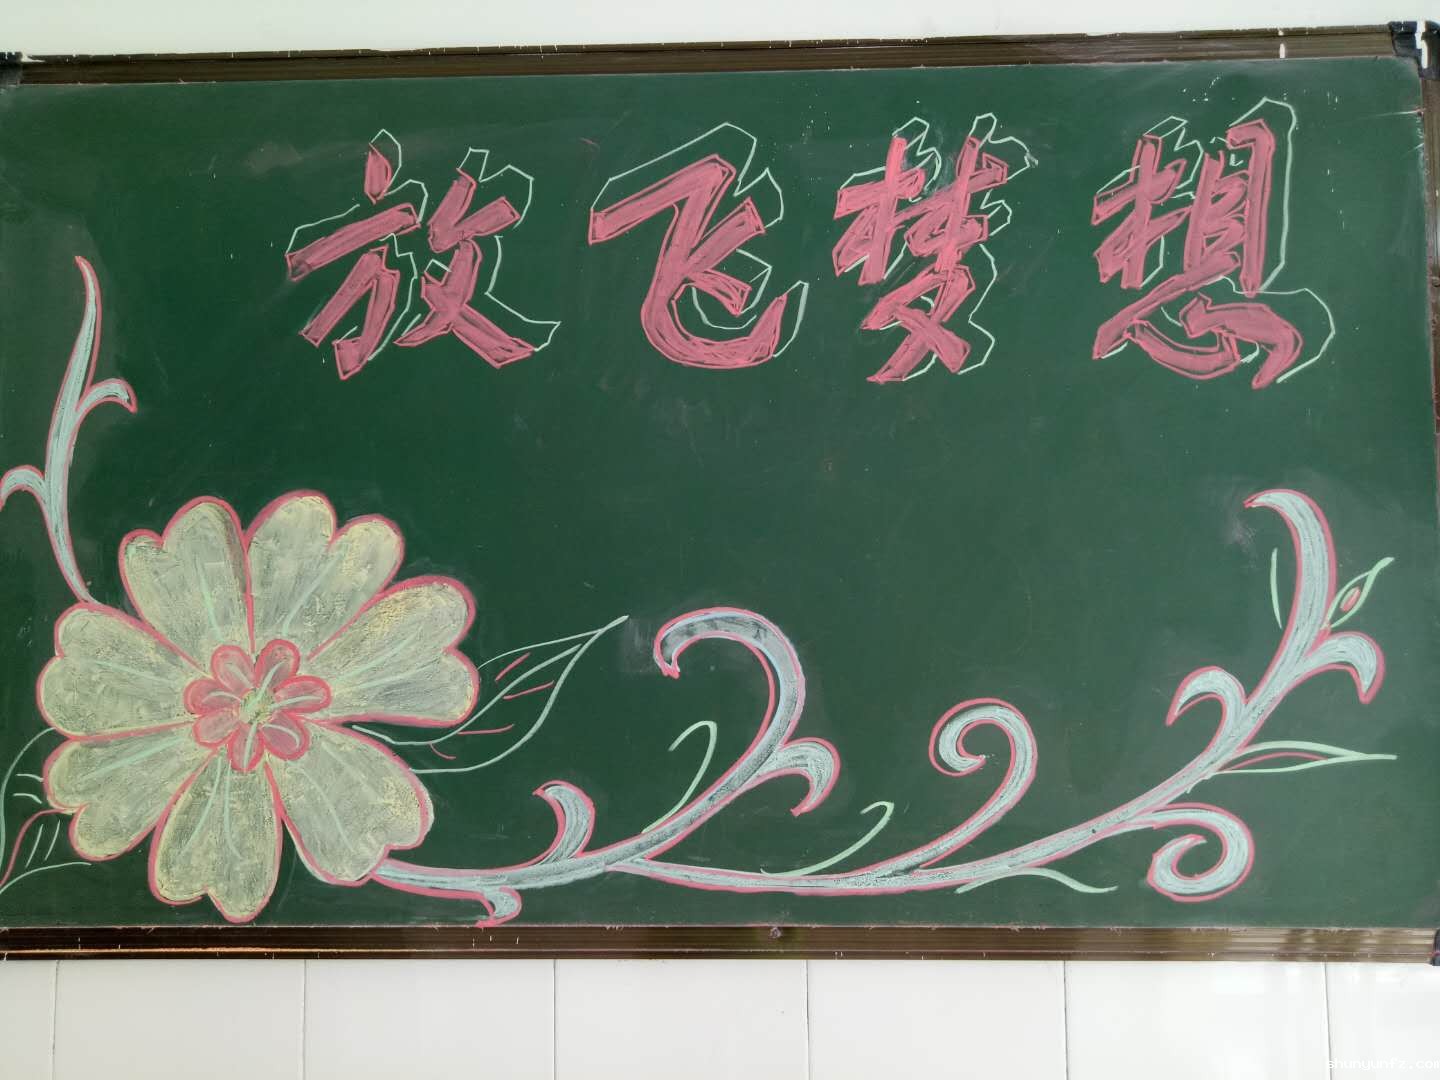 放飞梦想